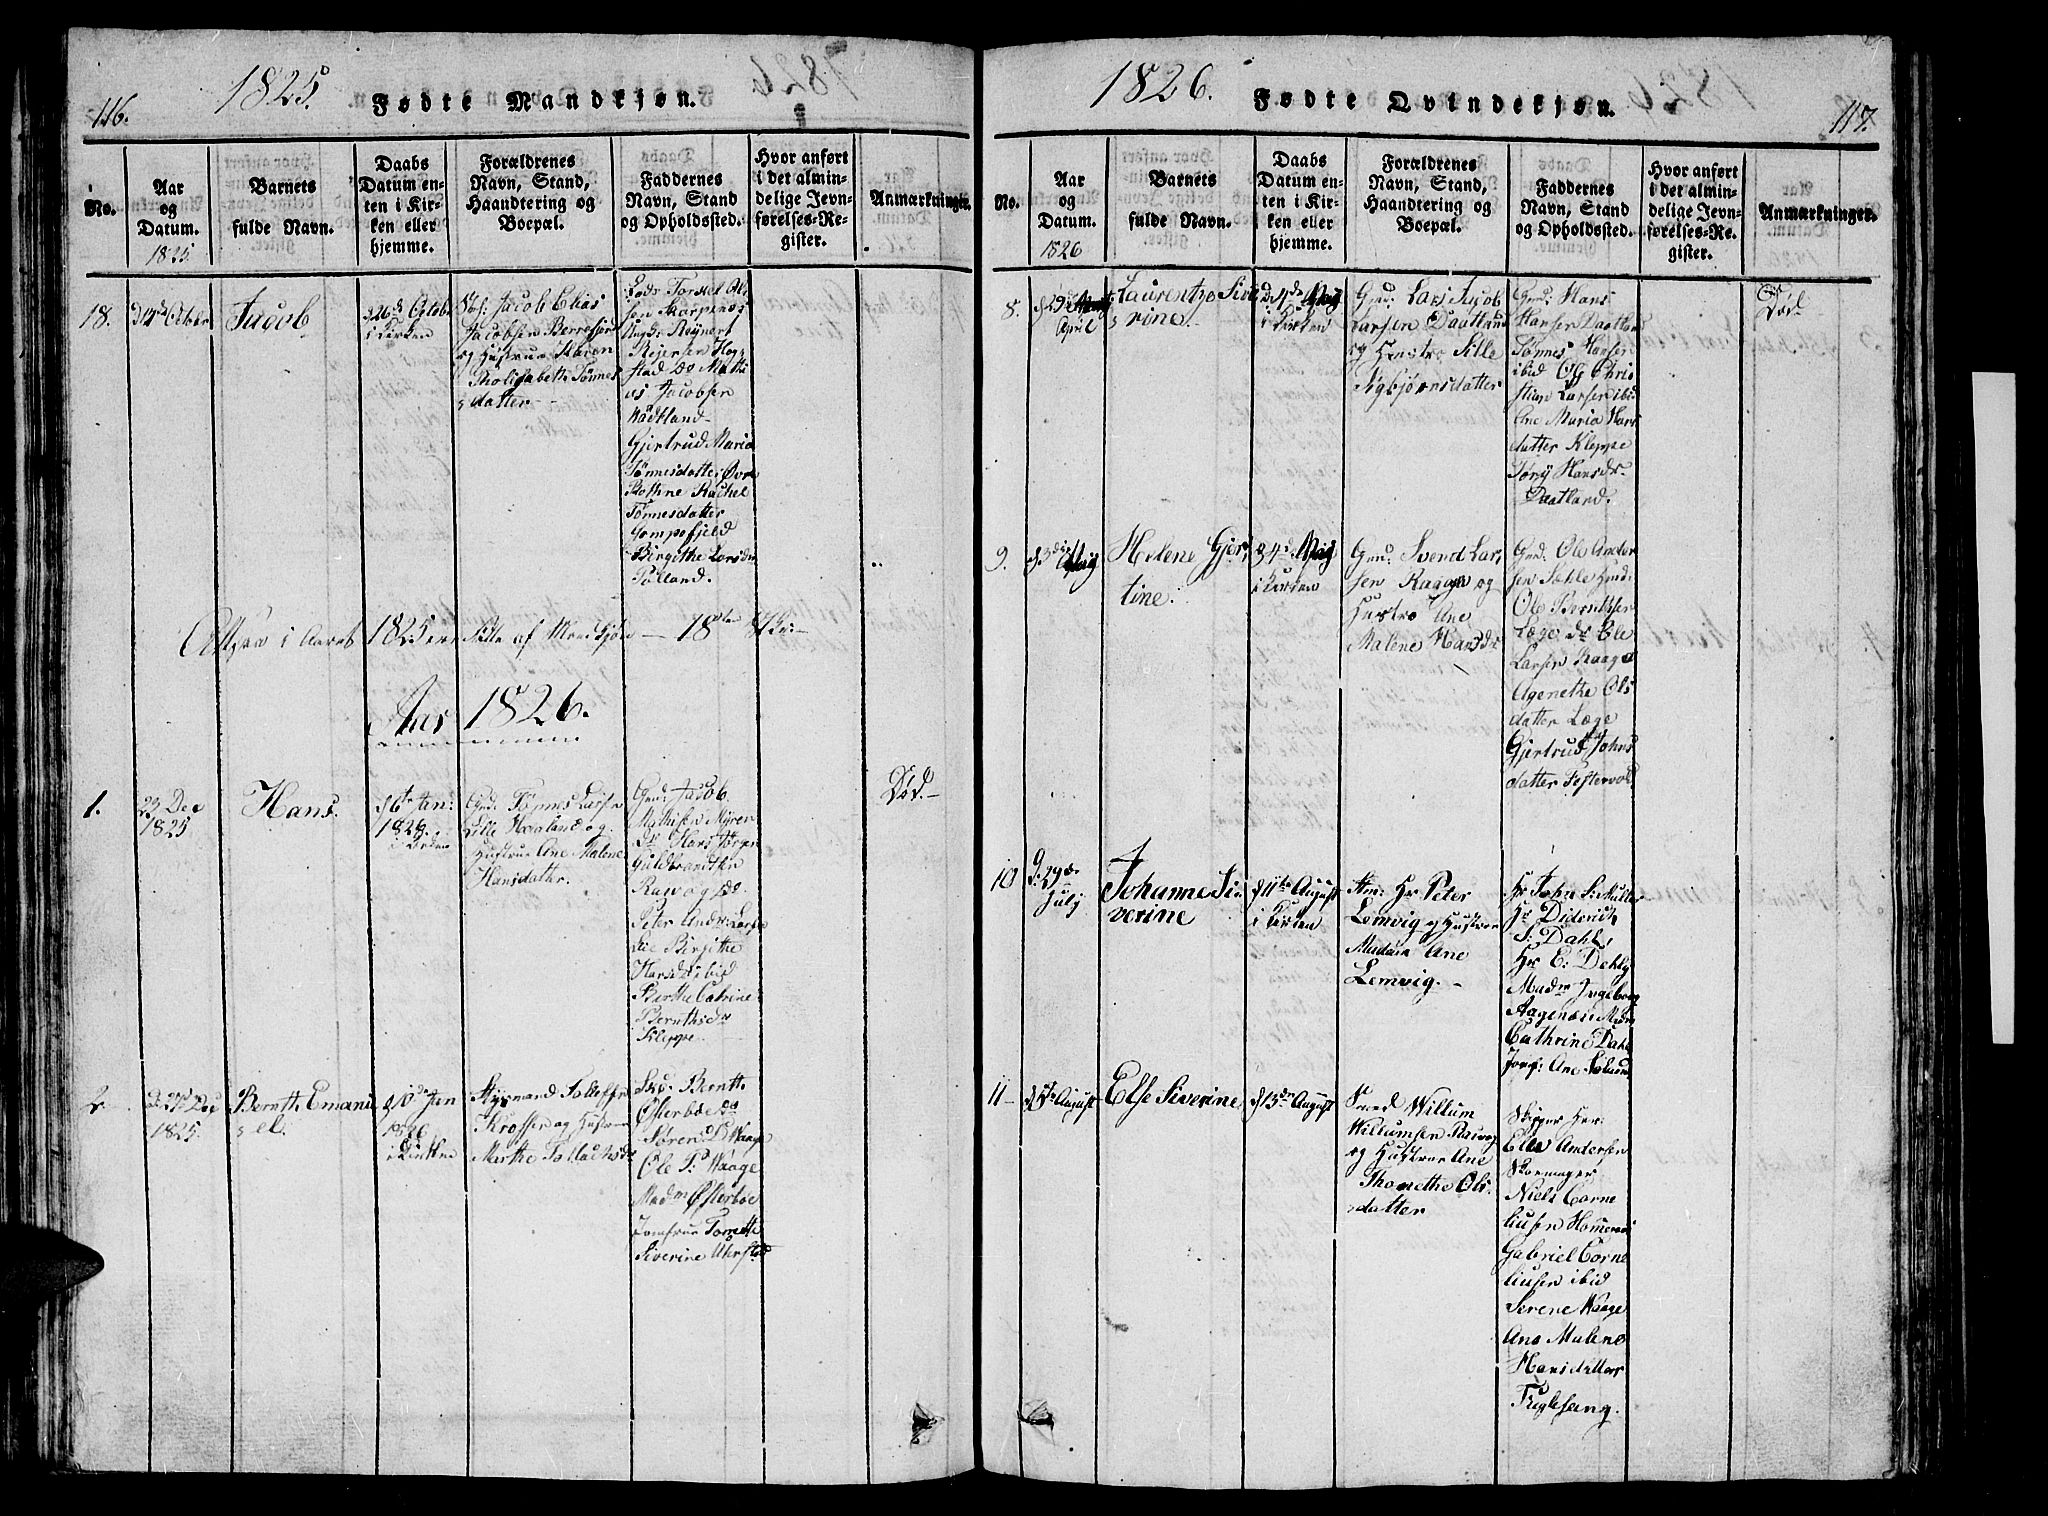 116.
1825.
Fødte Mandkjøn.
No.
Aar
og
Datum.
1825
Barnets
fulde Navn.
Daabs
Datum en-
ten i Kir-
ken eller
hjemme.
Forældrenes
Navn, Stand,
Haandtering og
Boepæl.
Faddernes
Navn, Stand
og Opholdssted.
Hvor anført
i det almin-
delige Jevn-
førelses-Re-
gister.
Anmærkninger.
18.
Jacob
d 26de Octobr
i Kirken
Jacob Elias
Jacobsen Berrefjord
og Hustrue Karen
Tholisabeth Tønnes
datter
Lods Torkel Ol
sen
Reynert
Rejersen Hog
stad
os Jacobsen
Nådland
Gjertrud Maria
Tønnesdatter
Rachel
Tønnesdatter
Gompefjeld
Birgithe Larsdr
Tolland.
i Aaret 1825 ere Føde af Mandkjøn — 18
Aar 1826.
1.
23 Dec
1825
Hans.
1826
i Kirken
Gmd: Tønnes Larsen
Lille Howland og
Hustrue Ane Malene
Hansdattr.
Gmd: Jacob
Mathisen Myren
dr Hans Jørgen
Guldbrandsen
Rawog
Peter Andr: Larsen
Lie Birgithe
Hansdr ibid
Berthe Catrine
Bernthsdr
Kleppe
Død.
2
d. 27d Dec
1825.
Bernth Emanu
el.
d 10de Jan
1826
i Kirken
Styrmand Tollefsen
Krosser og Hustrue
Marthe Tollachsdr
Bernth
Østerboe
Søren L Waage
Ole P: Waage
Madm Østerboe
Jomfrue Tomette
Siverine Uhrstad
1826.
Fødte Qvindekjøn.
117.
No.
Aar
og
Datum.
1826
Barnets
fulde Navn.
Daabs
Datum en-
ten i Kir-
ken eller
hjemme.
Forældrenes
Navn, Stand,
Haandtering og
Boepæl.
Faddernes
Navn, Stand
og Opholdssted.
Hvor anført
i det almin-
delige Jevn-
førelses-Re-
gister.
Anmærkninger.
8.
April
Laurentze Sive
rine.
d. 4de May
i Kirken
Gmd: Lars Jacob
Larsen Daatland
og Hustro Sille
Sigbjørnsdatter
Gmd: Hans
Hansen Daatland
Tønnes Hansen
ibid Og Chris
stian Larsen ibid
Ane Maria Hans
datter Kleppe
Tørry Hansdr
Daatland.
Død
9.
May
Helene Gjer
tine.
d 4d May
i Kirken
Gmd: Svend Lar
sen Raage og
Hustro Ane
Malene Hansdr
Gmd: Ole Ander
sen
Ole Berntsen
Læge dr Ole
Larsen Raage
Agenethe Ols
datter Læge
Gjertrud Johns
datter Festervold
10
d: 29de
July
Johanne Si
verine
d 11te August
i Kirken
Hr Peter
Lemvig og Hustrue
Madam Ane
Lemvig.
Hr John S: Muller
Hr Diderich
S: Dahl,
Hr E: Dehly
Madm Ingeborg
Aagenæs Mdm
Cathrine Dahl
Jomf: Ane
11
August
Else Siverine
d 13de August
Willum
Willumsen Rawog
og Hustrue Ane
Thomethe Ols
datter
Skipper Hr:
Elles Andersen
Niels Corne
liusen
Gabriel Corne
liusen ibid
Serene Waage
Ane Malene
Hansdatter
Fuglesang.